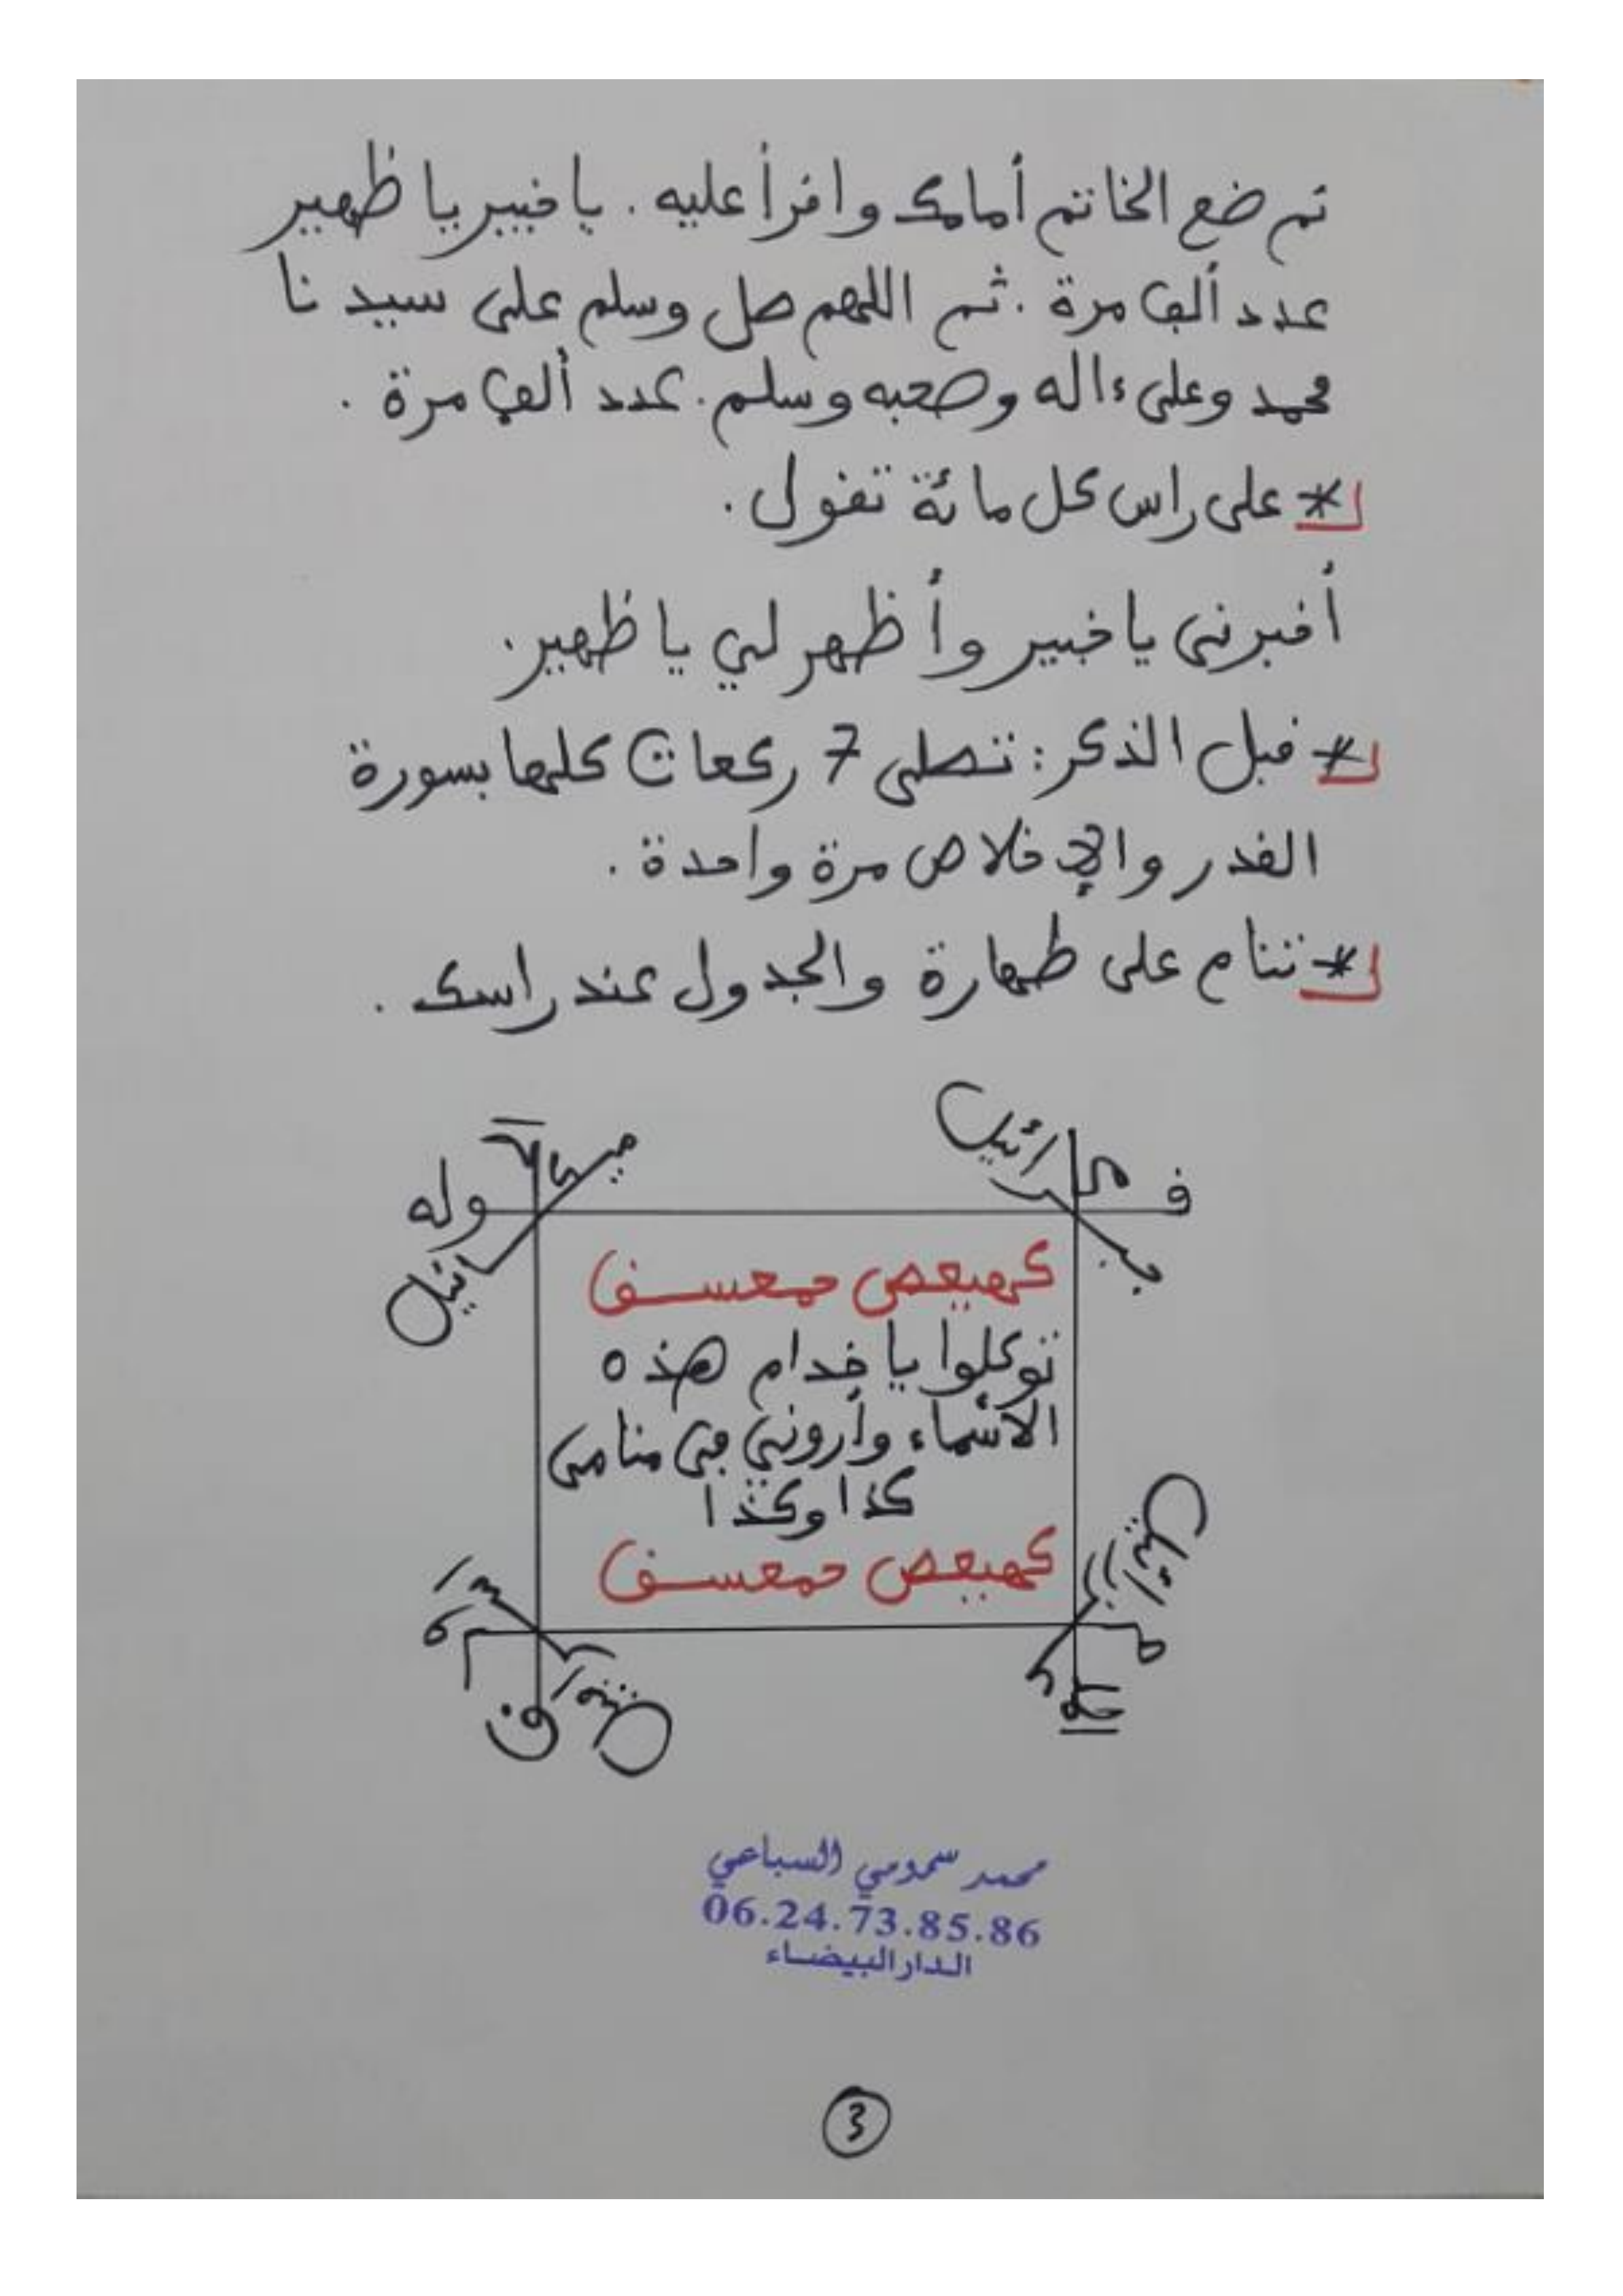 تم ضع الخاتم أمامك وافرأ عليه . يا خبير يا ظهير
عدد ألف مرة . ثم اللهم صل وسلم على سيدنا
محمد وعلى ءاله وصحبه وسلم . عدد ألف مرة .
* على راس كل مائة تفول .
أخبرني يا خبير وأظهر لي يا ظهير .
* فبل الذكر : تصلي 7 ركعات كلها بسورة
الفدر والإخلاص مرة واحدة .
* تنام على طهارة والجدول عند راسك .
جبرائيل
ميكائيل
وله
كهيعص حمعسق
توكلوا يا خدام هذه
الأسماء وأروني في منامي
كذا وكذا
كهيعص حمعسق
محمد سمومي السباعي
06.24.73.85.86
الدار البيضاء
3